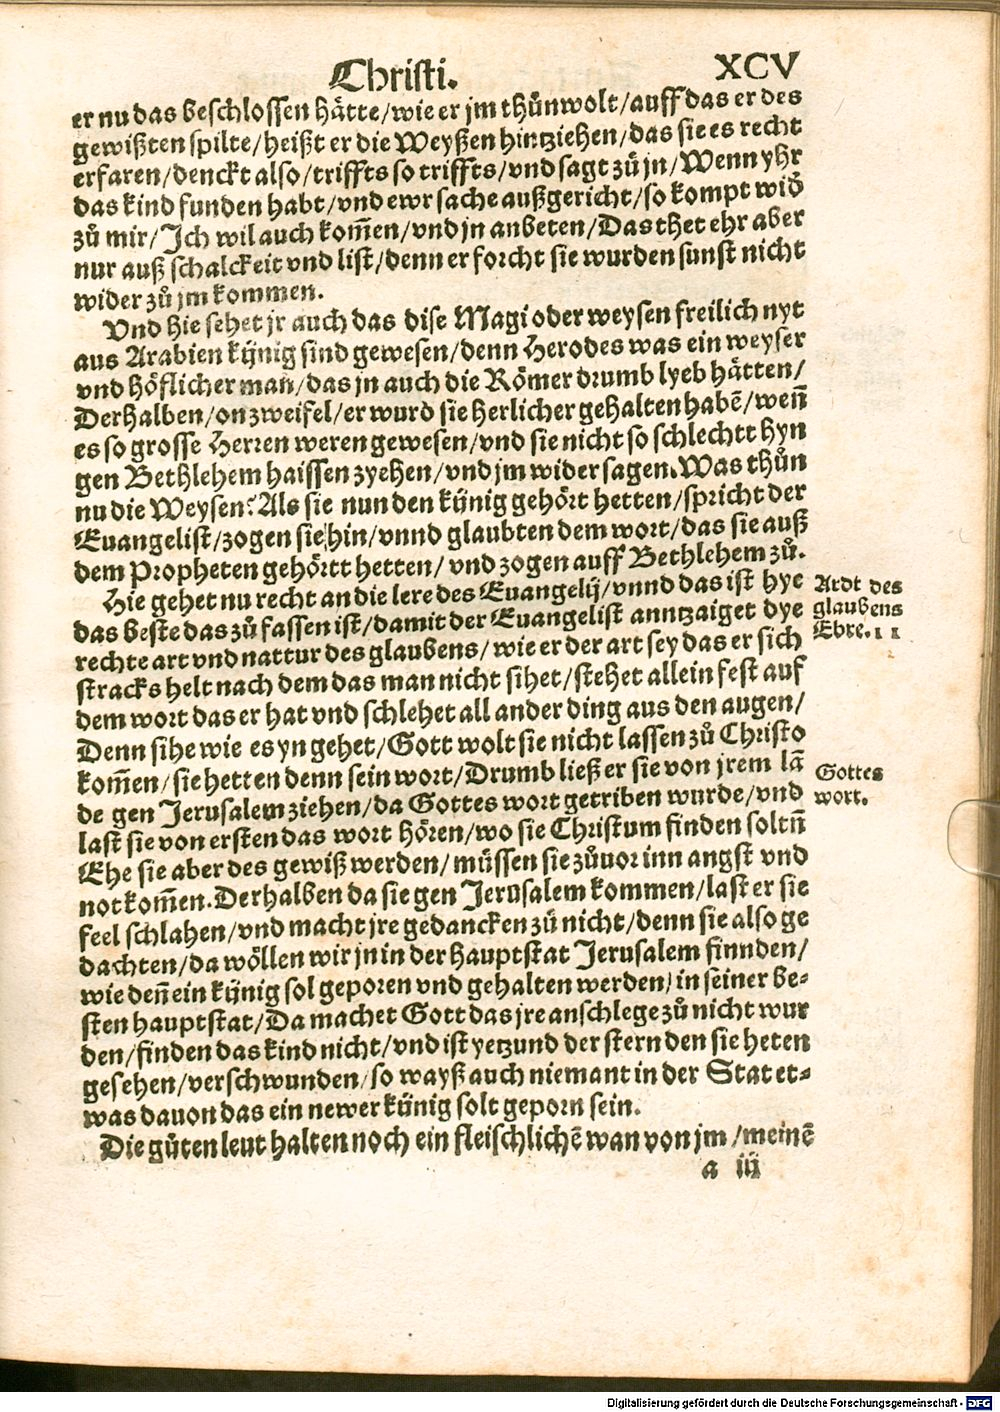 Christi.
XCV
er nu das beschlossen hätte/wie er jm thůn wolt/auff das er des
gewißten spilte/heißt er die Weyßen hintziehen/das sie es recht
erfaren/denckt also/triffts so triffts/vnd sagt zů jn/Wenn yhr
das kind funden habt/vnd ewr sache außgericht/so kompt wid̛
zů mir/Ich wil auch kom̄en/vnd jn anbeten/Das thet ehr aber
nur auß schalckeit vnd list/denn er forcht sie wurden sunst nicht
wider zů jm kommen.
Vnd hie sehet jr auch das dise Magi oder weysen freilich nyt
aus Arabien kijnig sind gewesen/denn Herodes was ein weyser
vnd höflicher man/das jn auch die Römer drumb lyeb hätten/
Derhalben/on zweifel/er wurd sie herlicher gehalten habē/weñ
es so grosse Herren weren gewesen/vnd sie nicht so schlechtt hyn
gen Bethlehem haissen zyehen/vnd jm wider sagen. Was thůn
nu die Weysen? Als sie nun den kijnig gehört hetten/spricht der
Euangelist/zogen sie hin/vnnd glaubten dem wort/das sie auß
dem Propheten gehörtt hetten/vnd zogen auff Bethlehem zů.
Hie gehet nu recht an die lere des Euangelij/vnnd das ist hye
das beste das zů fassen ist/damit der Euangelist anntzaiget dye
rechte art vnd nattur des glaubens/wie er der art sey das er sich
stracks helt nach dem das man nicht sihet/stehet allein fest auf
dem wort das er hat vnd schlehet all ander ding aus den augen/
Denn sihe wie es yn gehet/Gott wolt sie nicht lassen zů Christo
kom̄en/sie hetten denn sein wort/Drumb ließ er sie von jrem lā
de gen Jerusalem ziehen/da Gottes wort getriben wurde/vnd
last sie von ersten das wort hören/wo sie Christum finden soltñ
Ehe sie aber des gewiß werden/müssen sie zůuor inn angst vnd
not kom̄en. Derhalben da sie gen Jerusalem kommen/last er sie
feel schlahen/vnd macht jre gedancken zů nicht/denn sie also ge
dachten/da wöllen wir jn in der hauptstat Jerusalem finnden/
wie deñ ein kijnig sol geporen vnd gehalten werden/in seiner be-
sten hauptstat/Da machet Gott das jre anschlege zů nicht wur
den/finden das kind nicht/vnd ist yetzund der stern den sie heten
gesehen/verschwunden/so wayß auch niemant in der Stat et-
was dauon das ein newer kijnig solt geporn sein.
Die gůten leut halten noch ein fleischlichē wan von jm/meinē
a iij
Ardt des
glaubens
Ebre. 11
Gottes
wort.
Digitalisierung gefördert durch die Deutsche Forschungsgemeinschaft - DFG